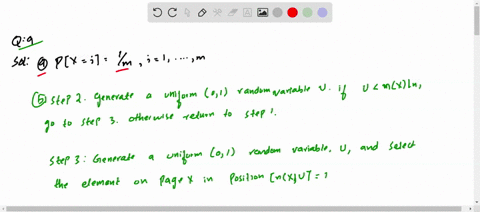 Q:9
Sol: (a) P[X = i] = 1/m , i = 1, ...., m
(b) Step 2. Generate a uniform (0,1) random variable U. if U < n(X)/n,
go to step 3. otherwise return to step 1.
Step 3: Generate a uniform (0,1) random variable. U, and select
the element on page X in position [n(X)U] =